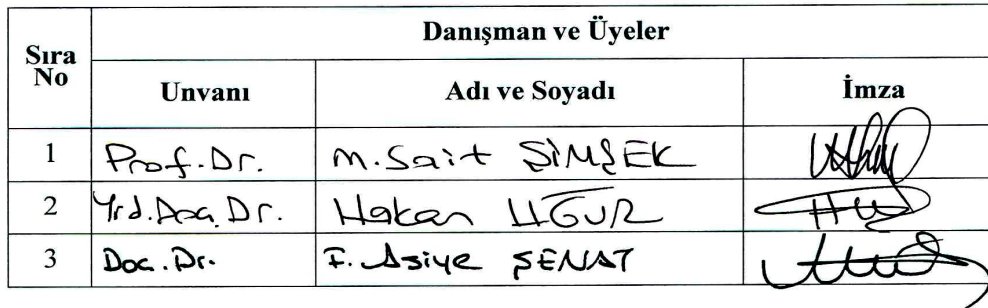 Sıra No
Danışman ve Üyeler
Unvanı Adı ve Soyadı İmza
1 Prof. Dr. M. Sait ŞİMŞEK
2 Yrd. Doç. Dr. Hakan UĞUR
3 Doç. Dr. F. Asiye ŞENAT